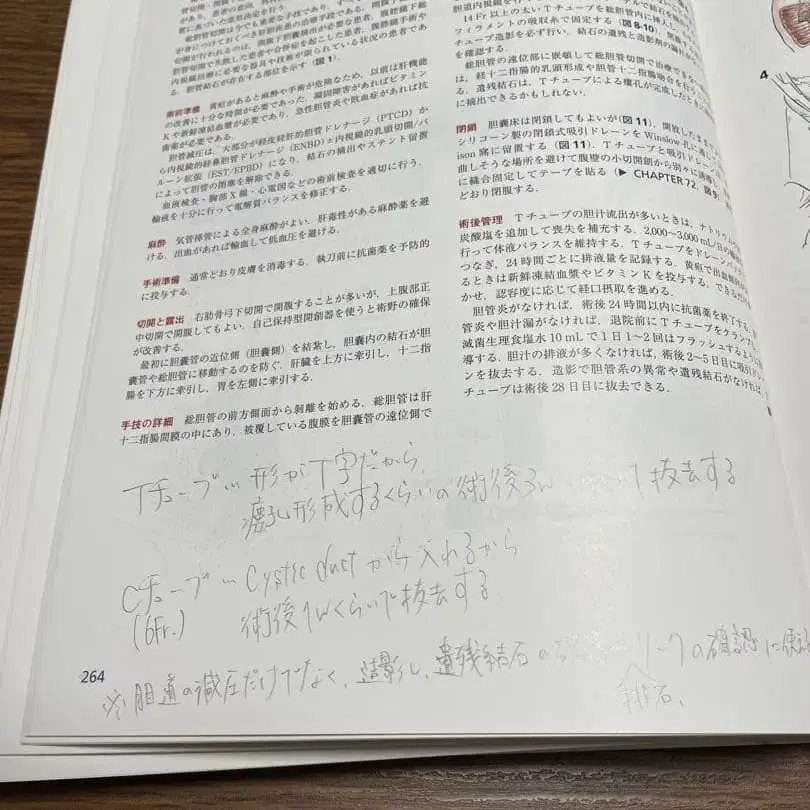 が身につけておくべき肝胆疾患の治療手段である。
切開が行われるのは,腹腔下胆管検出が必要な患者,腹腔鏡手術や
胆管切開で失敗した患者や合併症を起こした患者,
内視鏡治療に必要な器具や技術が限られている状況の患者であ
る.胆管結石が存在する部位を示す(図1).
術前準備 黄疸があると麻酔や手術が危険なため,以前は肝機能
の改善に十分な時間が必要であった.凝固障害があればビタミン
Kや新鮮凍結血漿が必要であり,急性胆管炎や敗血症があれば抗
菌薬が必要である.
胆管減圧は,大部分が経皮経肝的胆管ドレナージ(PTCD)か
ら内視鏡的経鼻胆管ドレナージ(ENBD)±内視鏡的乳頭切開/バ
ルーン拡張(EST/EPBD)になり,結石の摘出やステント留置
によって胆管の閉塞を解除できる.
血液検査・胸部X線・心電図などの術前検査を適切に行う.
輸液を十分に行って電解質バランスを修正する.
麻酔 気管挿管による全身麻酔がよい.肝毒性がある麻酔薬を避
ける.出血があれば輸血して低血圧を避ける.
手術準備 通常どおり皮膚を消毒する.執刀前に抗菌薬を予防的
に投与する.
切開と露出 右肋骨弓下切開で開腹することが多いが,上腹部正
中切開で開腹してもよい.自己保持型開創器を使うと術野の確保
が改善する.
最初に胆嚢管の近位側(胆嚢側)を結紮し,胆嚢内の結石が胆
嚢管や総胆管に移動するのを防ぐ.肝臓を上方に牽引し,十二指
腸を下方に牽引し,胃を左側に牽引する.
手技の詳細 総胆管の前方側面から剝離を始める.総胆管は肝
十二指腸間膜の中にあり,被覆している腹膜を胆嚢管の遠位側で
14Fr以上の太いTチューブを総胆管内に挿入し
フィラメントの吸収糸で固定する(図8-10).
チューブ造影を必ず行い,結石の遺残と造影剤の漏れが
を確認する.
総胆管の遠位部に嵌頓して総胆管切開で治療できない
は,経十二指腸的乳頭形成や胆管十二指腸吻合を行う
る.遺残結石は,Tチューブによる瘻孔が完成したとき
に摘出できるかもしれない.
閉鎖 胆嚢床は閉鎖してもよいが(図11),開放したまま
シリコーン製の閉鎖式吸引ドレーンをWinslow孔に通し
ison窩に留置する(図11).Tチューブと吸引ドレーンは
曲しそうな場所を避けて腹壁の小切開創から別々に誘導
に縫合固定してテープを貼る(▶ CHAPTER 72,
どおり閉腹する.
術後管理 Tチューブの胆汁流出が多いときは,ナトリウム
炭酸塩を追加して喪失を補充する.2,000~3,000mL/日の
行って体液バランスを維持する.Tチューブをドレーンバッグ
つなぎ,24時間ごとに排液量を記録する.黄疸で出血傾向が
るときは新鮮凍結血漿やビタミンKを投与する.できるだけ
かせ,認容度に応じて経口摂取を進める.
胆管炎がなければ,術後24時間以内に抗菌薬を終了する.
管炎や胆汁漏がなければ,退院前にTチューブをクランプし
滅菌生理食塩水10mLで1日1~2回はフラッシュするよう
導する.胆汁の排液が多くなければ,術後2~5日目に吸引ド
ンを抜去する.造影で胆管系の異常や遺残結石がなければ,
チューブは術後28日目に抜去できる.
Tチューブ… 形がT字だから,
瘻孔形成するくらいの術後3w 抜去する
Cチューブ… Cystic ductから入れるから
(6Fr.) 術後1wくらいで抜去する
※胆道の減圧だけでなく,造影し,遺残結石の リークの確認に使
排石.
264
4